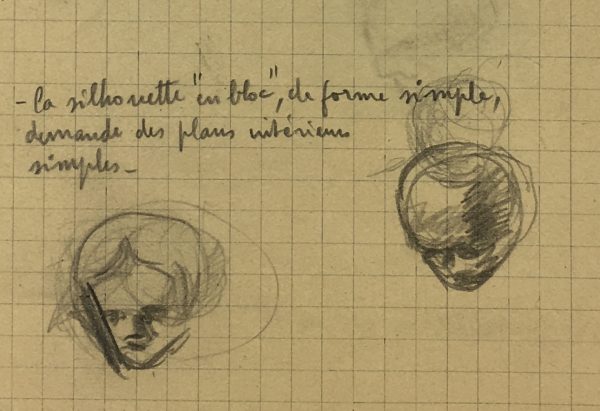 - la silhouette "en bloc", de forme simple,
demande des plans intérieurs
simples -